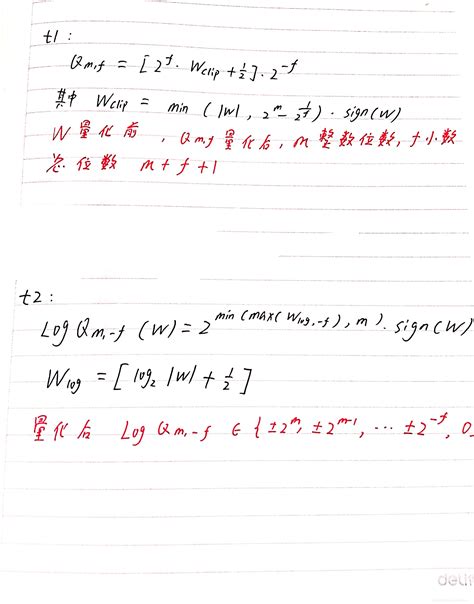 t1:
Qm,f = [2^f · Wclip + 1/2] · 2^-f
其中 Wclip = min (|W|, 2^m - 1/2^f) · sign(W)
W 量化前, Qm,f 量化后, m 整数位数, f 小数
总位数 m + f + 1
t2:
Log Qm,-f (W) = 2^min(max(Wlog, -f), m) · sign(W)
Wlog = [log2 |W| + 1/2]
量化后 Log Qm,-f ∈ {±2^m, ±2^m-1, ... ±2^-f, 0
deli